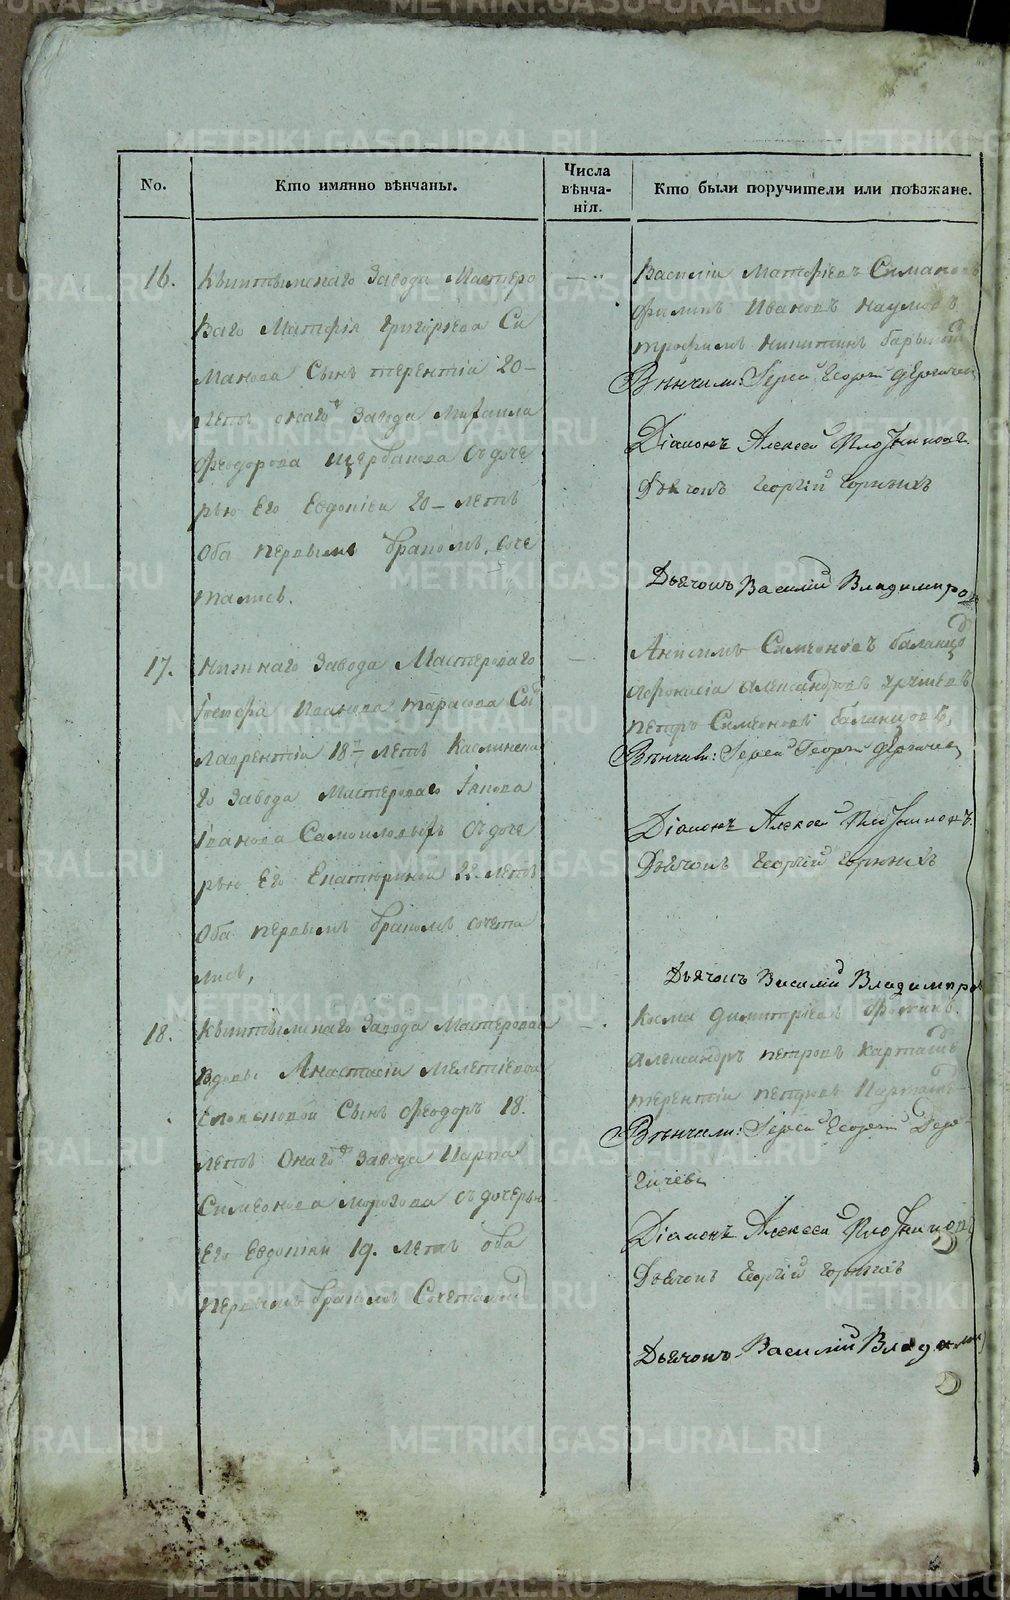 No.
Кто имянно вѣнчаны.
Числа
вѣнча-
нія.
Кто были поручители или поѣзжане.
16.
Кыштымскаго Завода Мастеро
ваго Матфія Григорьева Си
манова Сынъ терентій 20-
летъ онаго Завода Михаила
Феодорова Щербакова Съ доче
рью Его Евдокіеи 20 - летъ
Оба первымъ бракомъ, соче
тались.
Василіи Матфіевъ Симановъ
Филипъ Ивановъ Наумовъ
трофимъ Никитинъ
Вѣнчали: Іереи Георгій
Діаконъ Алексеи Плотниковъ
Дьячокъ Георгій
Дьячокъ Василій Владимиров
17.
Завода Мастероваго
Іосифа Иванова тарасова Сы
Лаврентіи 18 - летъ Каслинска
го Завода Мастероваго Іякова
Іванова Самоиловыхъ Съ доче
рью Его Екатериной 22 летъ
Оба первымъ бракомъ сочета
лись,
Анисимъ Симеоновъ баланцо
Афонасіи Александровъ
Петръ Симеоновъ баланцовъ,
Вѣнчали: Іереи Георгій
Діаконъ Алексеи Плотниковъ.
Дьячокъ Георгій
Дьячокъ Василій Владимиров
18.
Кыштымскаго Завода Мастеровой
вдовы Анастасіи Мелетіевой
Сынъ Феодоръ 18.
летъ Онаго Завода Карпа
Симеонова Морозова съ дочерью
Его Евдокіеи 19. летъ оба
первымъ бракомъ Сочетались
Косма Димитріевъ Фотинъ.
Александръ петровъ
терентіи петровъ
Вѣнчали: Іереи Георгій Дер-
гичевъ
Діаконъ Алексеи Плотниковъ
Дьячокъ Георгій
Дьячокъ Василій Владими
METRIKI.GASO-URAL.RU